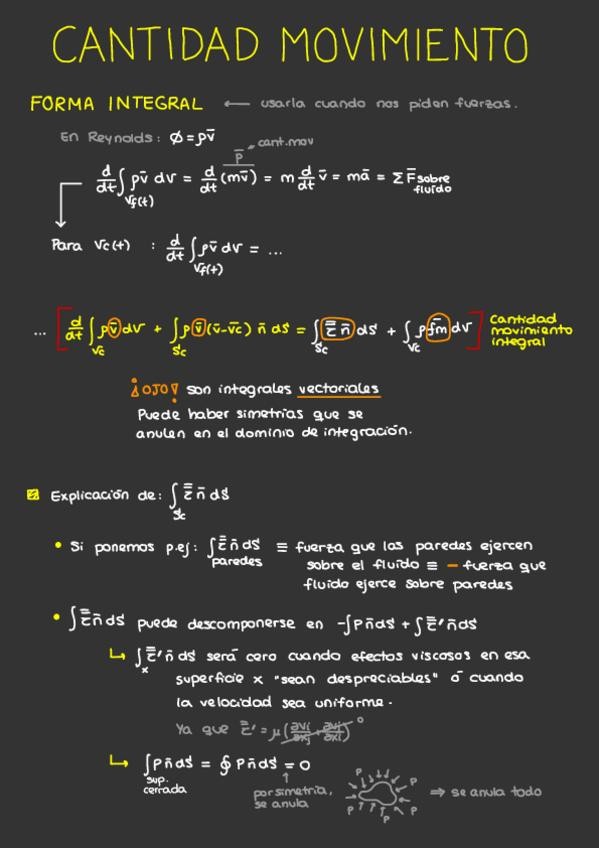 CANTIDAD MOVIMIENTO
FORMA INTEGRAL ← usarla cuando nos piden fuerzas.
En Reynolds: ϕ = ρv̄
p̄ → cant.mov
d/dt ∫_Vf(t) ρv̄ dv = d/dt (mv̄) = m d/dt v̄ = mā = Σ F̄ sobre fluido
Para Vc(t) : d/dt ∫_Vf(t) ρv̄ dv = ...
... [ d/dt ∫_Vc ρv̄ dv + ∫_Sc ρv̄ (v̄-v̄c) n̄ ds = ∫_Sc τ̿ n̄ ds + ∫_Vc ρf̄m dv ] cantidad movimiento integral
¡OJO! son integrales vectoriales
Puede haber simetrías que se
anulen en el dominio de integración.
Explicación de: ∫_Sc τ̿ n̄ ds
• Si ponemos p.ej: ∫_paredes τ̿ n̄ ds ≡ fuerza que las paredes ejercen
sobre el fluido ≡ - fuerza que
fluido ejerce sobre paredes
• ∫ τ̿ n̄ ds puede descomponerse en -∫ P n̄ ds + ∫ τ̿' n̄ ds
↳ ∫_x τ̿' n̄ ds será cero cuando efectos viscosos en esa
superficie x "sean despreciables" ó cuando
la velocidad sea uniforme.
Ya que τ̿' = μ (∂vi/∂xj + ∂vj/∂xi) 0
↳ ∫_sup. cerrada P n̄ ds = ∮ P n̄ ds = 0
↑
por simetría,
se anula
P P P P P P P
⇒ se anula todo